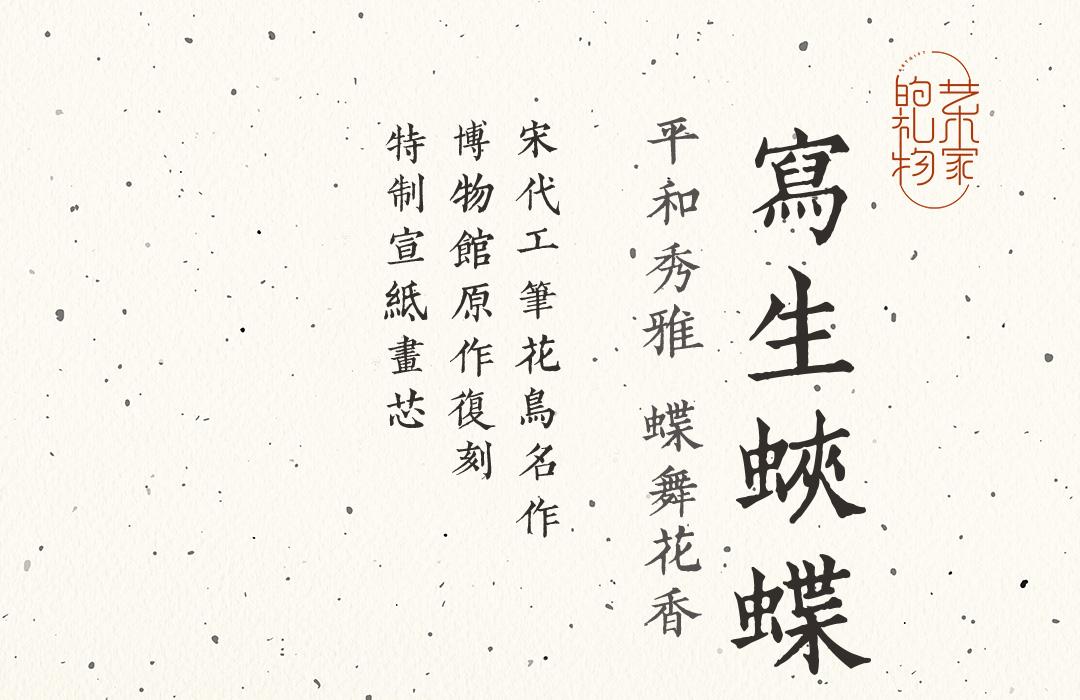 艺术家的礼物
寫生蛺蝶
平和秀雅 蝶舞花香
宋代工筆花鳥名作
博物館原作復刻
特制宣紙畫芯